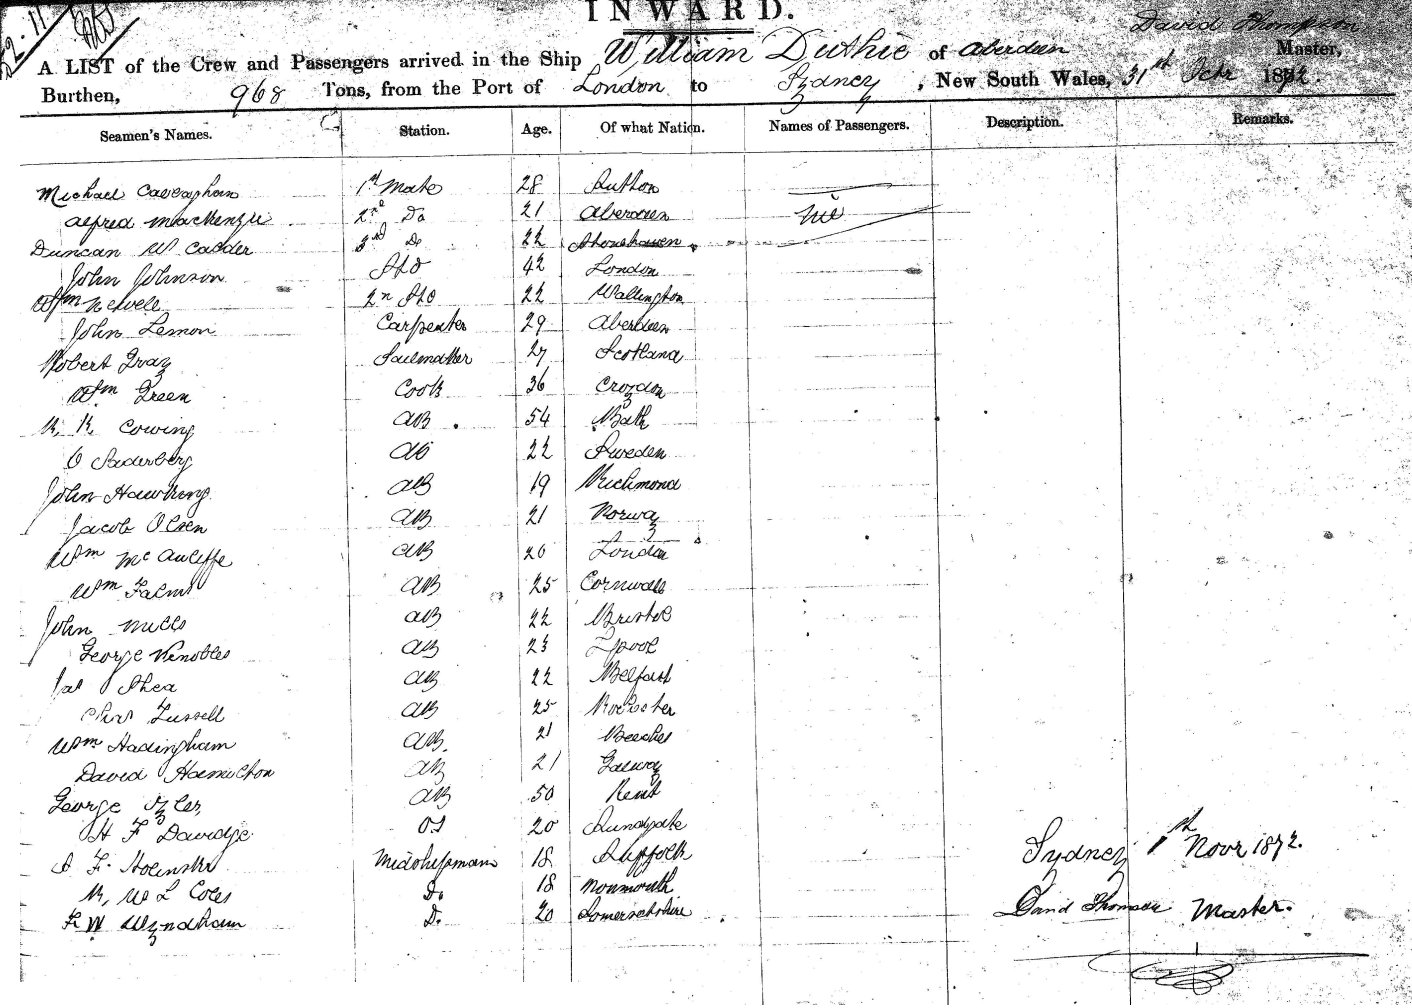 22.11
INWARD.
David Thompson
A LIST of the Crew and Passengers arrived in the Ship William Duthie of Aberdeen Master,
Burthen, 968 Tons, from the Port of London to Sydney, New South Wales, 31st Octr 1872.
Seamen's Names. Station. Age. Of what Nation. Names of Passengers. Description. Remarks.
Michael Cavaghan 1st Mate 28 Sutton
Alfred Mackenzie 2nd Do 21 Aberdeen Nil
Duncan W Calder 3rd Do 22 Stonehaven
John Johnson Std 42 London
Wm Newell 2n Std 22 Wallington
John Lemon Carpenter 29 Aberdeen
Robert Gray Sailmaker 27 Scotland
Wm Green Cook 36 Croydon
R. R. Cowing AB 54 Bath
O Saderberg AB 22 Sweden
John Hawking AB 19 Richmond
Jacob Olsen AB 21 Norway
Wm McAuliffe AB 20 London
Wm AB 25 Cornwall
John Mills AB 22 Bristol
George Venobles AB 23 Lpool
Jas Shea AB 22 Belfast
Chas Fussell AB 25 Rochester
Wm Hadingham AB 21 Beecles
David Hamilton AB 21 Galway
George Tyler, AB 50 Kent
H F Davidge OS 20 Sundgate
F. Midshipman 18 Suffolk
R, W L Coles Do 18 Monmouth
F W Wyndham D. 20 Somersetshire
Sydney 1st Novr 1872.
David Thomson Master.